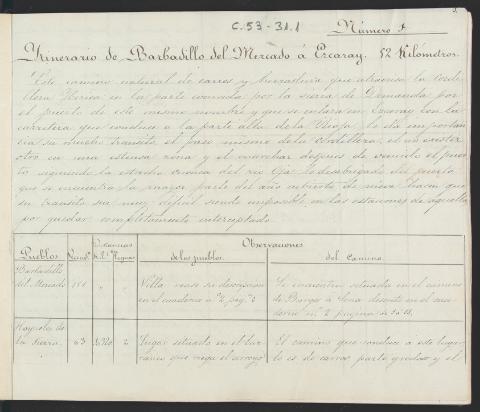 C.53-31.1
Número 1.
Itinerario de Barbadillo del Mercado á Ezcaray. 52 Kilómetros.
Este camino natural de carros y herradura que atraviesa la Cordi-
llera Iberica en la parte conocida por la sierra de Demanda por
el puerto de este mismo nombre y que se enlaza en Ezcaray con la
carretera que conduce a la parte alta de la Rioja, le da importan
cia su mucho transito, el paso mismo de la Cordillera, el no existir
otro en una estensa zona y el marchar despues de vencido el puer
to siguiendo la estrecha cuenca del rio Oja. Lo desabrigado del puerto
que se encuentra la mayor parte del año cubierto de nieve hacen que
su transito sea muy dificil siendo imposible en las estaciones de aquella
por quedar completamente interceptado.
Pueblos
Vecind.º
Distancias
Observaciones
de los pueblos.
del camino.
Barbadillo
del Mercado
Villa vease su descripcion
en el cuaderno nº 2 pag.ª
Se encuentra situado en el camino
de Burgos á Soria descrito en el cua
derno nº 2 pagina
la Sierra.
63
2
Lugar situado en el bar
ranco que riega el arroyo
El camino que conduce a este lugar
lo es de carros parte y el